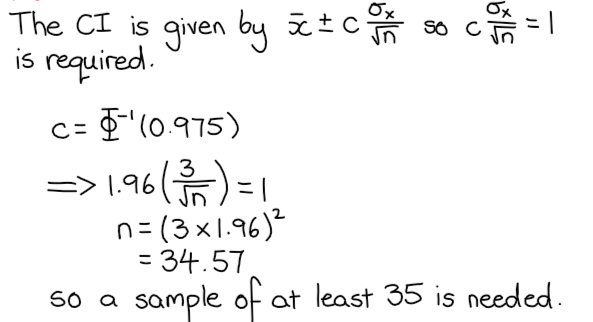 The CI is given by x̄ ± c σₓ/√n so c σₓ/√n = 1
is required.
c = Φ⁻¹(0.975)
=> 1.96(3/√n) = 1
n = (3 × 1.96)²
= 34.57
so a sample of at least 35 is needed.